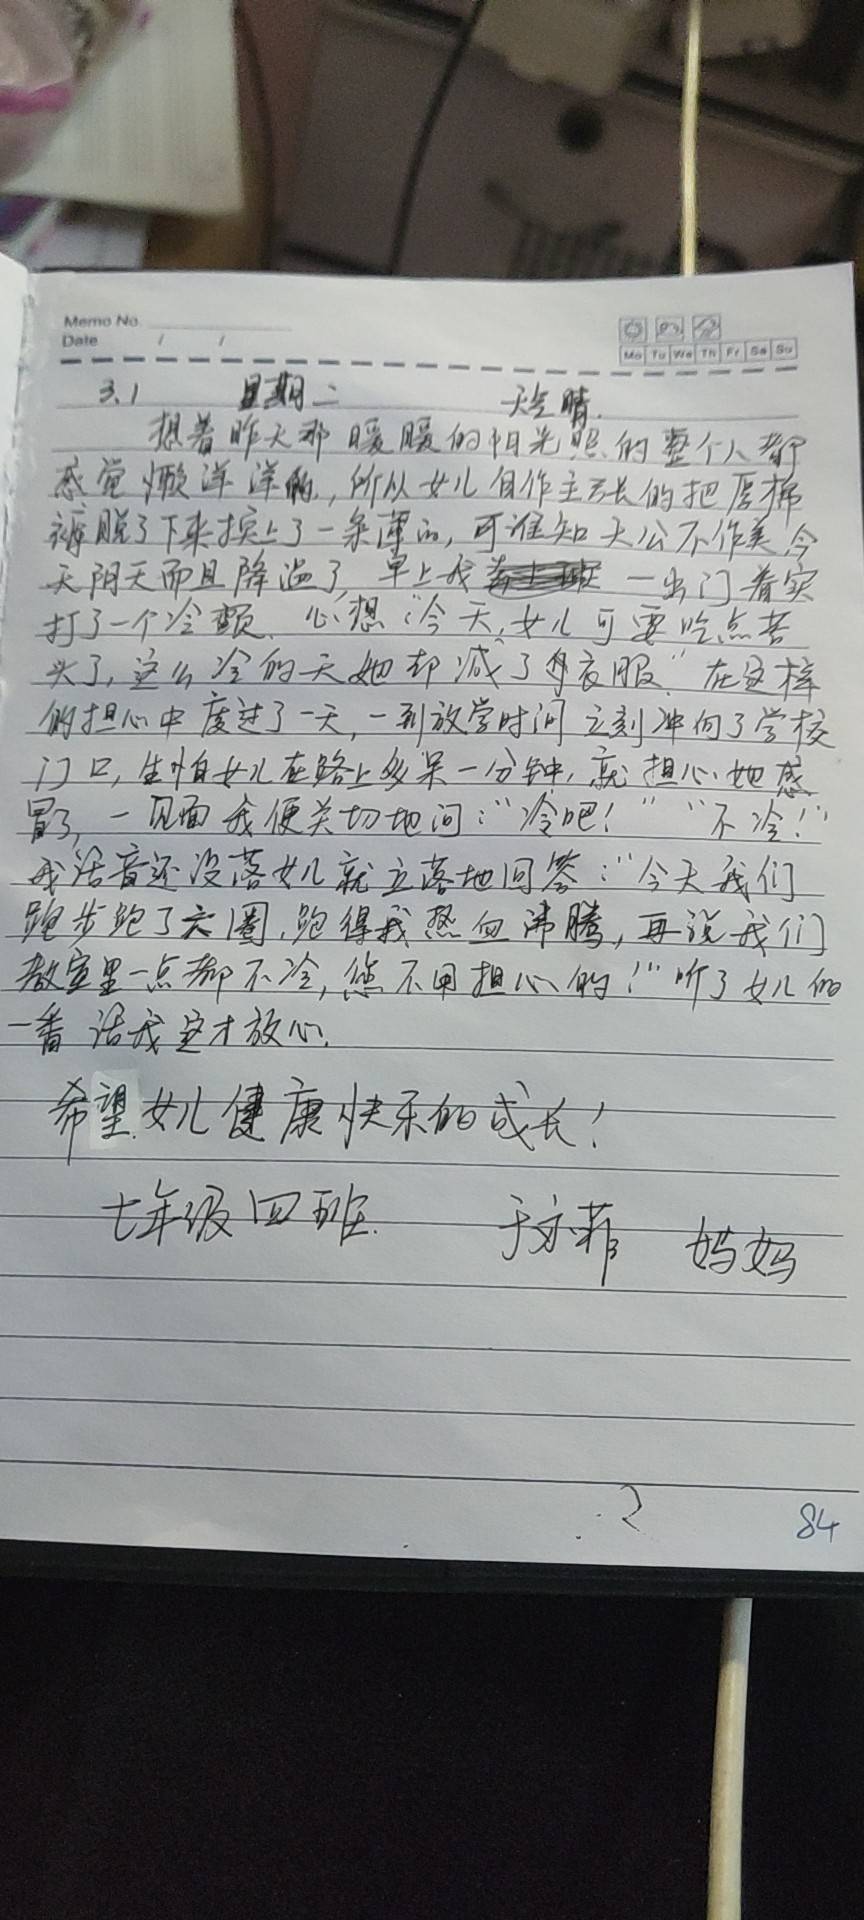 Memo No.
Date / /
Mo Tu We Th Fr Sa Su
3.1 星期二 天气晴.
想着昨天那暖暖的阳光照的整个人都
感觉懒洋洋的,所以女儿自作主张的把厚棉
裤脱了下来换上了一条薄的,可谁知天公不作美,今
天阴天而且降温了,早上我 一出门着实
打了一个冷颤.心想“今天,女儿可要吃点苦
头了,这么冷的天她却减了衣服”在这样
的担心中度过了一天,一到放学时间立刻冲向了学校
门口,生怕女儿在路上多呆一分钟,就担心她感
冒了,一见面我便关切地问:“冷吧!”“不冷!”
我话音还没落女儿就立落地回答:“今天我们
跑步跑了六圈,跑得我热血沸腾,再说我们
教室里一点都不冷,您不用担心的!”听了女儿的
一番话我这才放心.
希望女儿健康快乐的成长!
七年级四班. 于 菲 妈妈
84